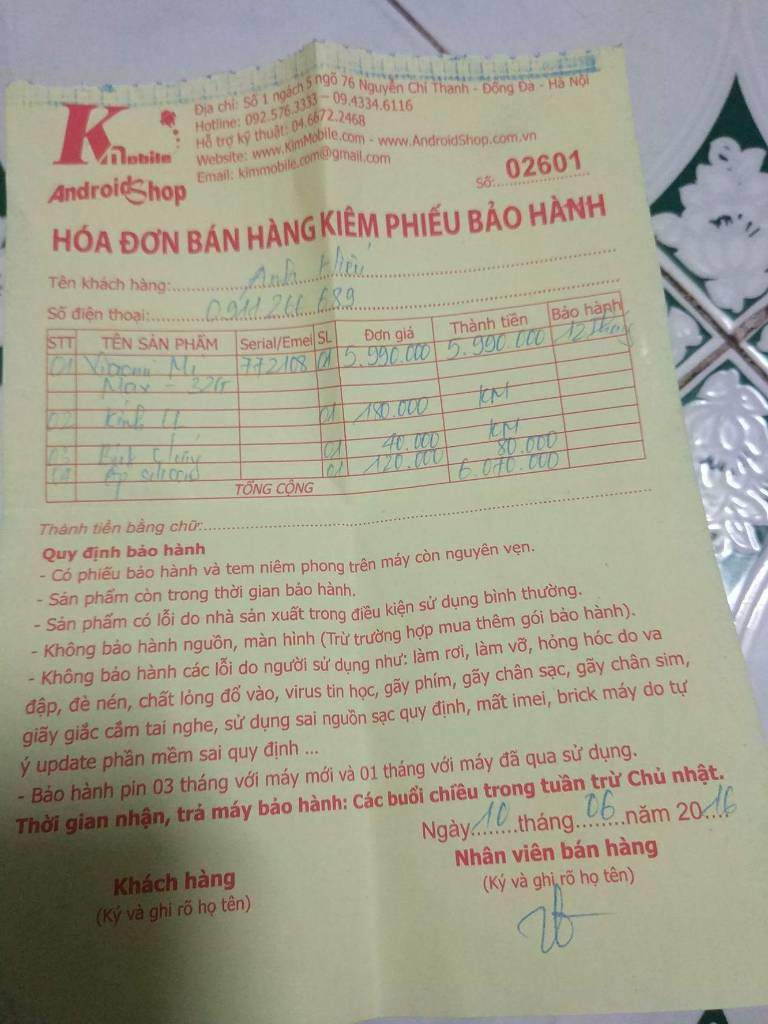 K Mobile
AndroidShop
Địa chỉ: Số 1 ngách 5 ngõ 76 Nguyễn Chí Thanh - Đống Đa - Hà Nội
Hotline: 092.576.3333 - 09.4334.6116
Hỗ trợ kỹ thuật: 04.6672.2468
Website: www.KimMobile.com - www.AndroidShop.com.vn
Email: kimmobile.com@gmail.com
Số: 02601
HÓA ĐƠN BÁN HÀNG KIÊM PHIẾU BẢO HÀNH
Tên khách hàng: Anh
Số điện thoại: 0911266689
STT TÊN SẢN PHẨM Serial/Emei SL Đơn giá Thành tiền Bảo hành
01 Xiaomi Mi 772108 01 5.990.000 5.990.000 12 tháng
Max - 32G
02 Kính 01 180.000 KM
03 01 40.000 KM
04 Ốp silicon 01 120.000 80.000
TỔNG CỘNG 6.070.000
Thành tiền bằng chữ:
Quy định bảo hành
- Có phiếu bảo hành và tem niêm phong trên máy còn nguyên vẹn.
- Sản phẩm còn trong thời gian bảo hành.
- Sản phẩm có lỗi do nhà sản xuất trong điều kiện sử dụng bình thường.
- Không bảo hành nguồn, màn hình (Trừ trường hợp mua thêm gói bảo hành).
- Không bảo hành các lỗi do người sử dụng như: làm rơi, làm vỡ, hỏng hóc do va
đập, đè nén, chất lỏng đổ vào, virus tin học, gãy phím, gãy chân sạc, gãy chân sim,
giãy giắc cắm tai nghe, sử dụng sai nguồn sạc quy định, mất imei, brick máy do tự
ý update phần mềm sai quy định ...
- Bảo hành pin 03 tháng với máy mới và 01 tháng với máy đã qua sử dụng.
Thời gian nhận, trả máy bảo hành: Các buổi chiều trong tuần trừ Chủ nhật.
Ngày 10 tháng 06 năm 2016
Khách hàng
(Ký và ghi rõ họ tên)
Nhân viên bán hàng
(Ký và ghi rõ họ tên)